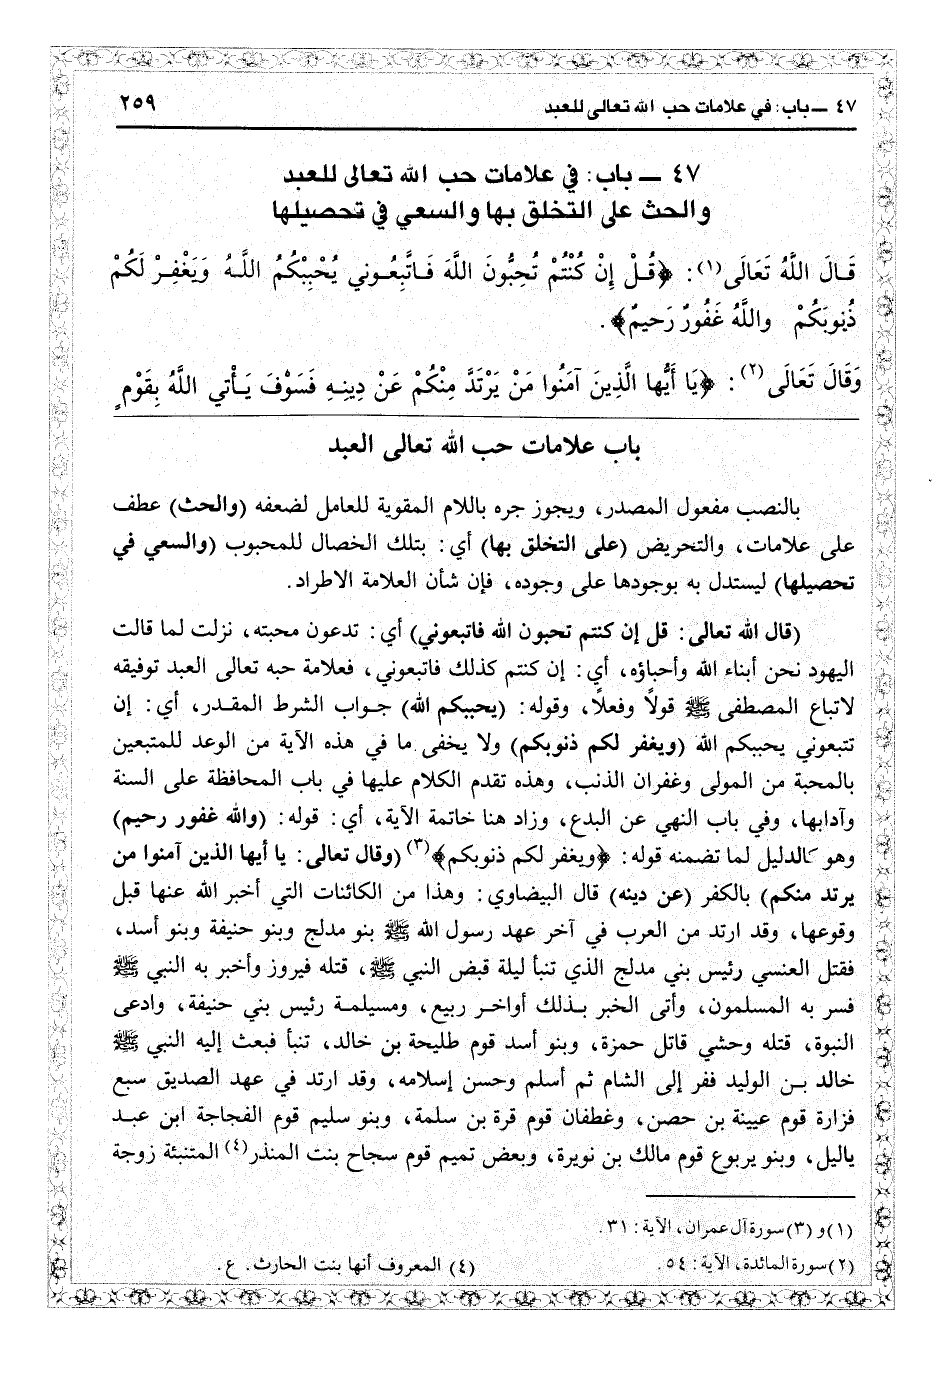 ٤٧ ــ باب: في علامات حب الله تعالى للعبد
٢٥٩
٤٧ ــ باب: في علامات حب الله تعالى للعبد
والحث على التخلق بها والسعي في تحصيلها
قَالَ اللَّهُ تَعَالَى(١): ﴿قُلْ إِنْ كُنْتُمْ تُحِبُّونَ اللَّهَ فَاتَّبِعُوني يُحْبِبْكُمُ اللَّهُ وَيَغْفِرْ لَكُمْ
ذُنُوبَكُمْ واللَّهُ غَفُورٌ رَحيمٌ﴾.
وَقَالَ تَعَالَى(٢): ﴿يَا أَيُّها الَّذِينَ آمَنُوا مَنْ يَرْتَدَّ مِنْكُمْ عَنْ دِينِهِ فَسَوْفَ يَأْتي اللَّهُ بِقَوْمٍ
باب علامات حب الله تعالى العبد
بالنصب مفعول المصدر، ويجوز جره باللام المقوية للعامل لضعفه (والحث) عطف
على علامات، والتحريض (على التخلق بها) أي: بتلك الخصال للمحبوب (والسعي في
تحصيلها) ليستدل به بوجودها على وجوده، فإن شأن العلامة الاطراد.
(قال الله تعالى: قل إن كنتم تحبون الله فاتبعوني) أي: تدعون محبته، نزلت لما قالت
اليهود نحن أبناء الله وأحباؤه، أي: إن كنتم كذلك فاتبعوني، فعلامة حبه تعالى العبد توفيقه
لاتباع المصطفى ﷺ قولًا وفعلًا، وقوله: (يحببكم الله) جواب الشرط المقدر، أي: إن
تتبعوني يحببكم الله (ويغفر لكم ذنوبكم) ولا يخفى ما في هذه الآية من الوعد للمتبعين
بالمحبة من المولى وغفران الذنب، وهذه تقدم الكلام عليها في باب المحافظة على السنة
وآدابها، وفي باب النهي عن البدع، وزاد هنا خاتمة الآية، أي: قوله: (والله غفور رحيم)
وهو كالدليل لما تضمنه قوله: ﴿ويغفر لكم ذنوبكم﴾(٣) (وقال تعالى: يا أيها الذين آمنوا من
يرتد منكم) بالكفر (عن دينه) قال البيضاوي: وهذا من الكائنات التي أخبر الله عنها قبل
وقوعها، وقد ارتد من العرب في آخر عهد رسول الله ﷺ بنو مدلج وبنو حنيفة وبنو أسد،
فقتل العنسي رئيس بني مدلج الذي تنبأ ليلة قبض النبي ﷺ، قتله فيروز وأخبر به النبي ﷺ
فسر به المسلمون، وأتى الخبر بذلك أواخر ربيع، ومسيلمة رئيس بني حنيفة، وادعى
النبوة، قتله وحشي قاتل حمزة، وبنو أسد قوم طليحة بن خالد، تنبأ فبعث إليه النبي ﷺ
خالد بن الوليد ففر إلى الشام ثم أسلم وحسن إسلامه، وقد ارتد في عهد الصديق سبع
فزارة قوم عيينة بن حصن، وغطفان قوم قرة بن سلمة، وبنو سليم قوم الفجاجة ابن عبد
ياليل، وبنو يربوع قوم مالك بن نويرة، وبعض تميم قوم سجاح بنت المنذر(٤) المتنبئة زوجة
(١) و (٣) سورة آل عمران، الآية: ٣١.
(٢) سورة المائدة، الآية: ٥٤.
(٤) المعروف أنها بنت الحارث. ع.